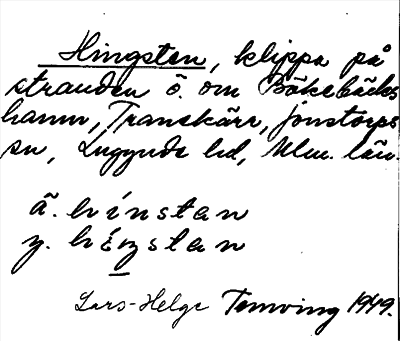 Hingsten, klippa på
stranden ö. om Bökebäcks
hamn, Tranekärr, Jonstorps
sn, Luggude hd, Mlm. län.
ä. hínstan
y. híŋstan
Lars-Helge Temving 1949.